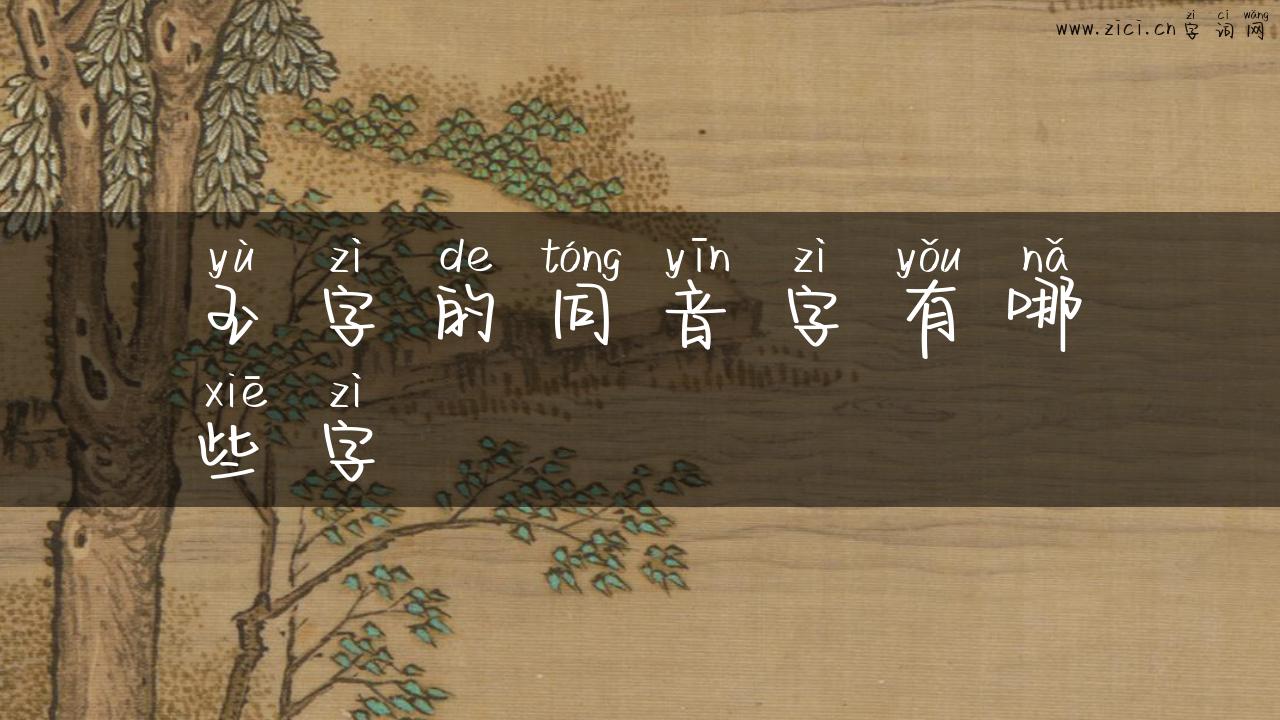 zì cí wǎng
www.zici.cn 字词网
yù zì de tóng yīn zì yǒu nǎ
玉字的同音字有哪
xiē zì
些字